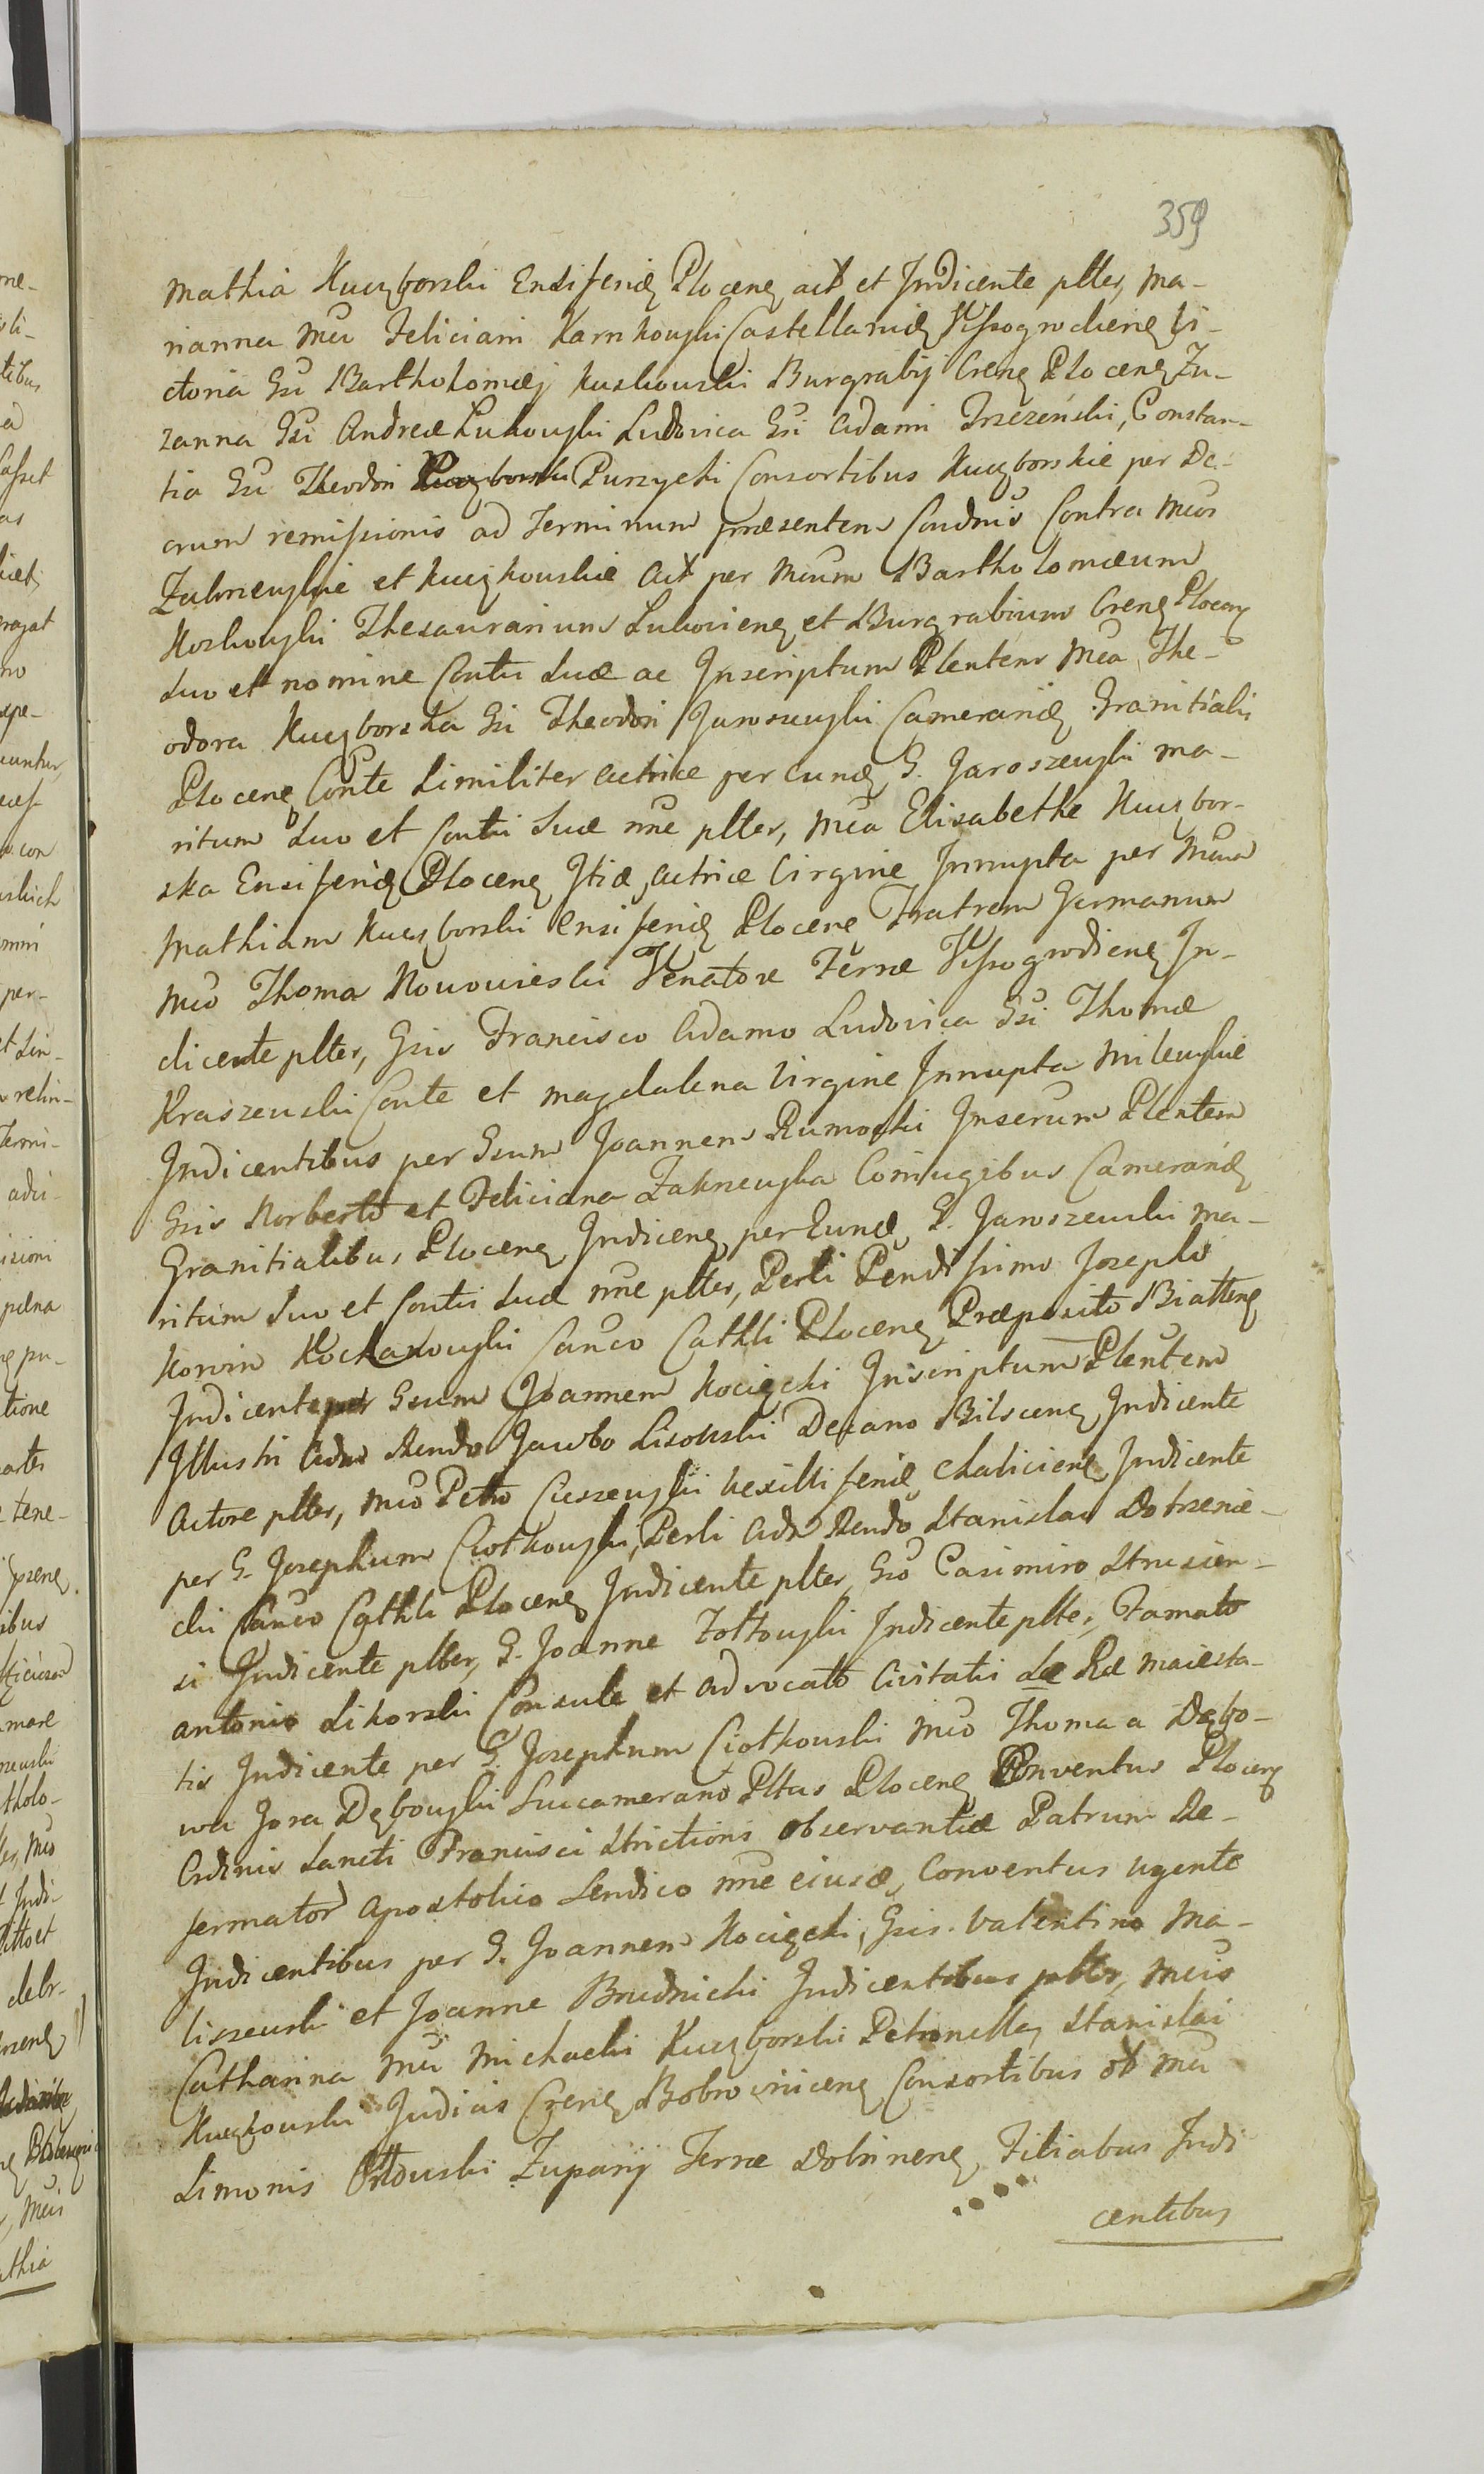 359
Mathia Kuczborski Ensiferid Plocens act et Indicente plter, Ma-
rianna Mci Feliciani Karnkowski Castellanid Vissogrodiens Vi-
ctoria Gsi Bartholomej Koskowski Burgrabij Crens Plocens Zu-
zanna Gsi Andreæ Lukowski Ludovica Gsi Adami Trzczenski, Constan-
tia Gsi Theodori Purzycki Consortibus Kuczborskie per De-
crum remissionis ad Terminum præsentem Condnis Contra Mcos
Zakrzewskie et Kuczkowskie Act per Mcum Bartholomæum
Koskowski Thesaurarium Lukoviens et Burgrabium Crens Plocens
suo et nomine Contis suæ ac Inscriptum Plentem Mca The-
odora Kuczborska Gsi Theodori Jaroszewski Camerarid Granitialis
Plocens Conte similiter actrice per eund G. Jaroszewski ma-
ritum suo et Contis suæ nne plter, Mca Elisabethe Kuczbor-
ska Ensiferid Plocens Ftia, actrice Virgine Innupta per Mcum
Mathiam Kuczborski Ensiferid Plocens Fratrem Germanum
Mco Thoma Nowowieski Venatore Terræ Vissogrodiens In-
dicente plter, Gsis Francisco Adamo Ludovica Gsi Thomæ
Kraszewski Conte et Magdalena Virgine Innupta Milewskie
Indicentibus per Gsum Joannem Rumocki Inscrum Plentem
Gsis Norberto et Feliciana Zakrzewska Coniugibus Camerarid
Granitialibus Plocens Indicens per Eund G. Jaroszewski ma-
ritum suo et Contis suæ nne plter, Perli Rendissimo Josepho
Korwin Kochanowski Canco Cathli Plocens Præposito Biattens
Indicente per Gsum Joannem Kocięcki Inscriptum Plentem
Illustri Adm Rendo Jacobo Lisowski Decano Bilscens Indicente
Actore plter, Mco Petro Cieszewski Vexilliferid Haliciens Indicente
per G. Josephum Ciotkowski, Perli Adm Rendo Stanislao Dobrzenie-
cki Canco Cathli Plocens Indicente plter Gso Casimiro Strusien-
si Indicente plter, G. Joanne Zottowski Indicente plter, Famato
Antonio Sikorski Consule et Advocato Civitatis Sæ Ræ Maiesta-
tis Indicente per G. Josephum Ciotkowski Mco Thoma a Dębo-
wa Gora Dębowski Succamerario Pltus Plocens Conventus Plocens
Ordinis Sancti Francisci Strictioris observantiæ Patrum Re-
formator Apostolico Sendico nne eiusd Conventus agente
Indicentibus per G. Joannem Kocięcki, Gsis Valentino Ma-
liszewski et Joanne Brudnicki Indicentibus plter, Mcis
Catharina Mci Michaelis Kuczborski Petronella Stanislai
Kuczkowski Judicis Crens Bobrovnicens Consortibus ol Mci
Simonis Orłowski Zuparij Terræ Dobrinens Filiabus Indi
centibus